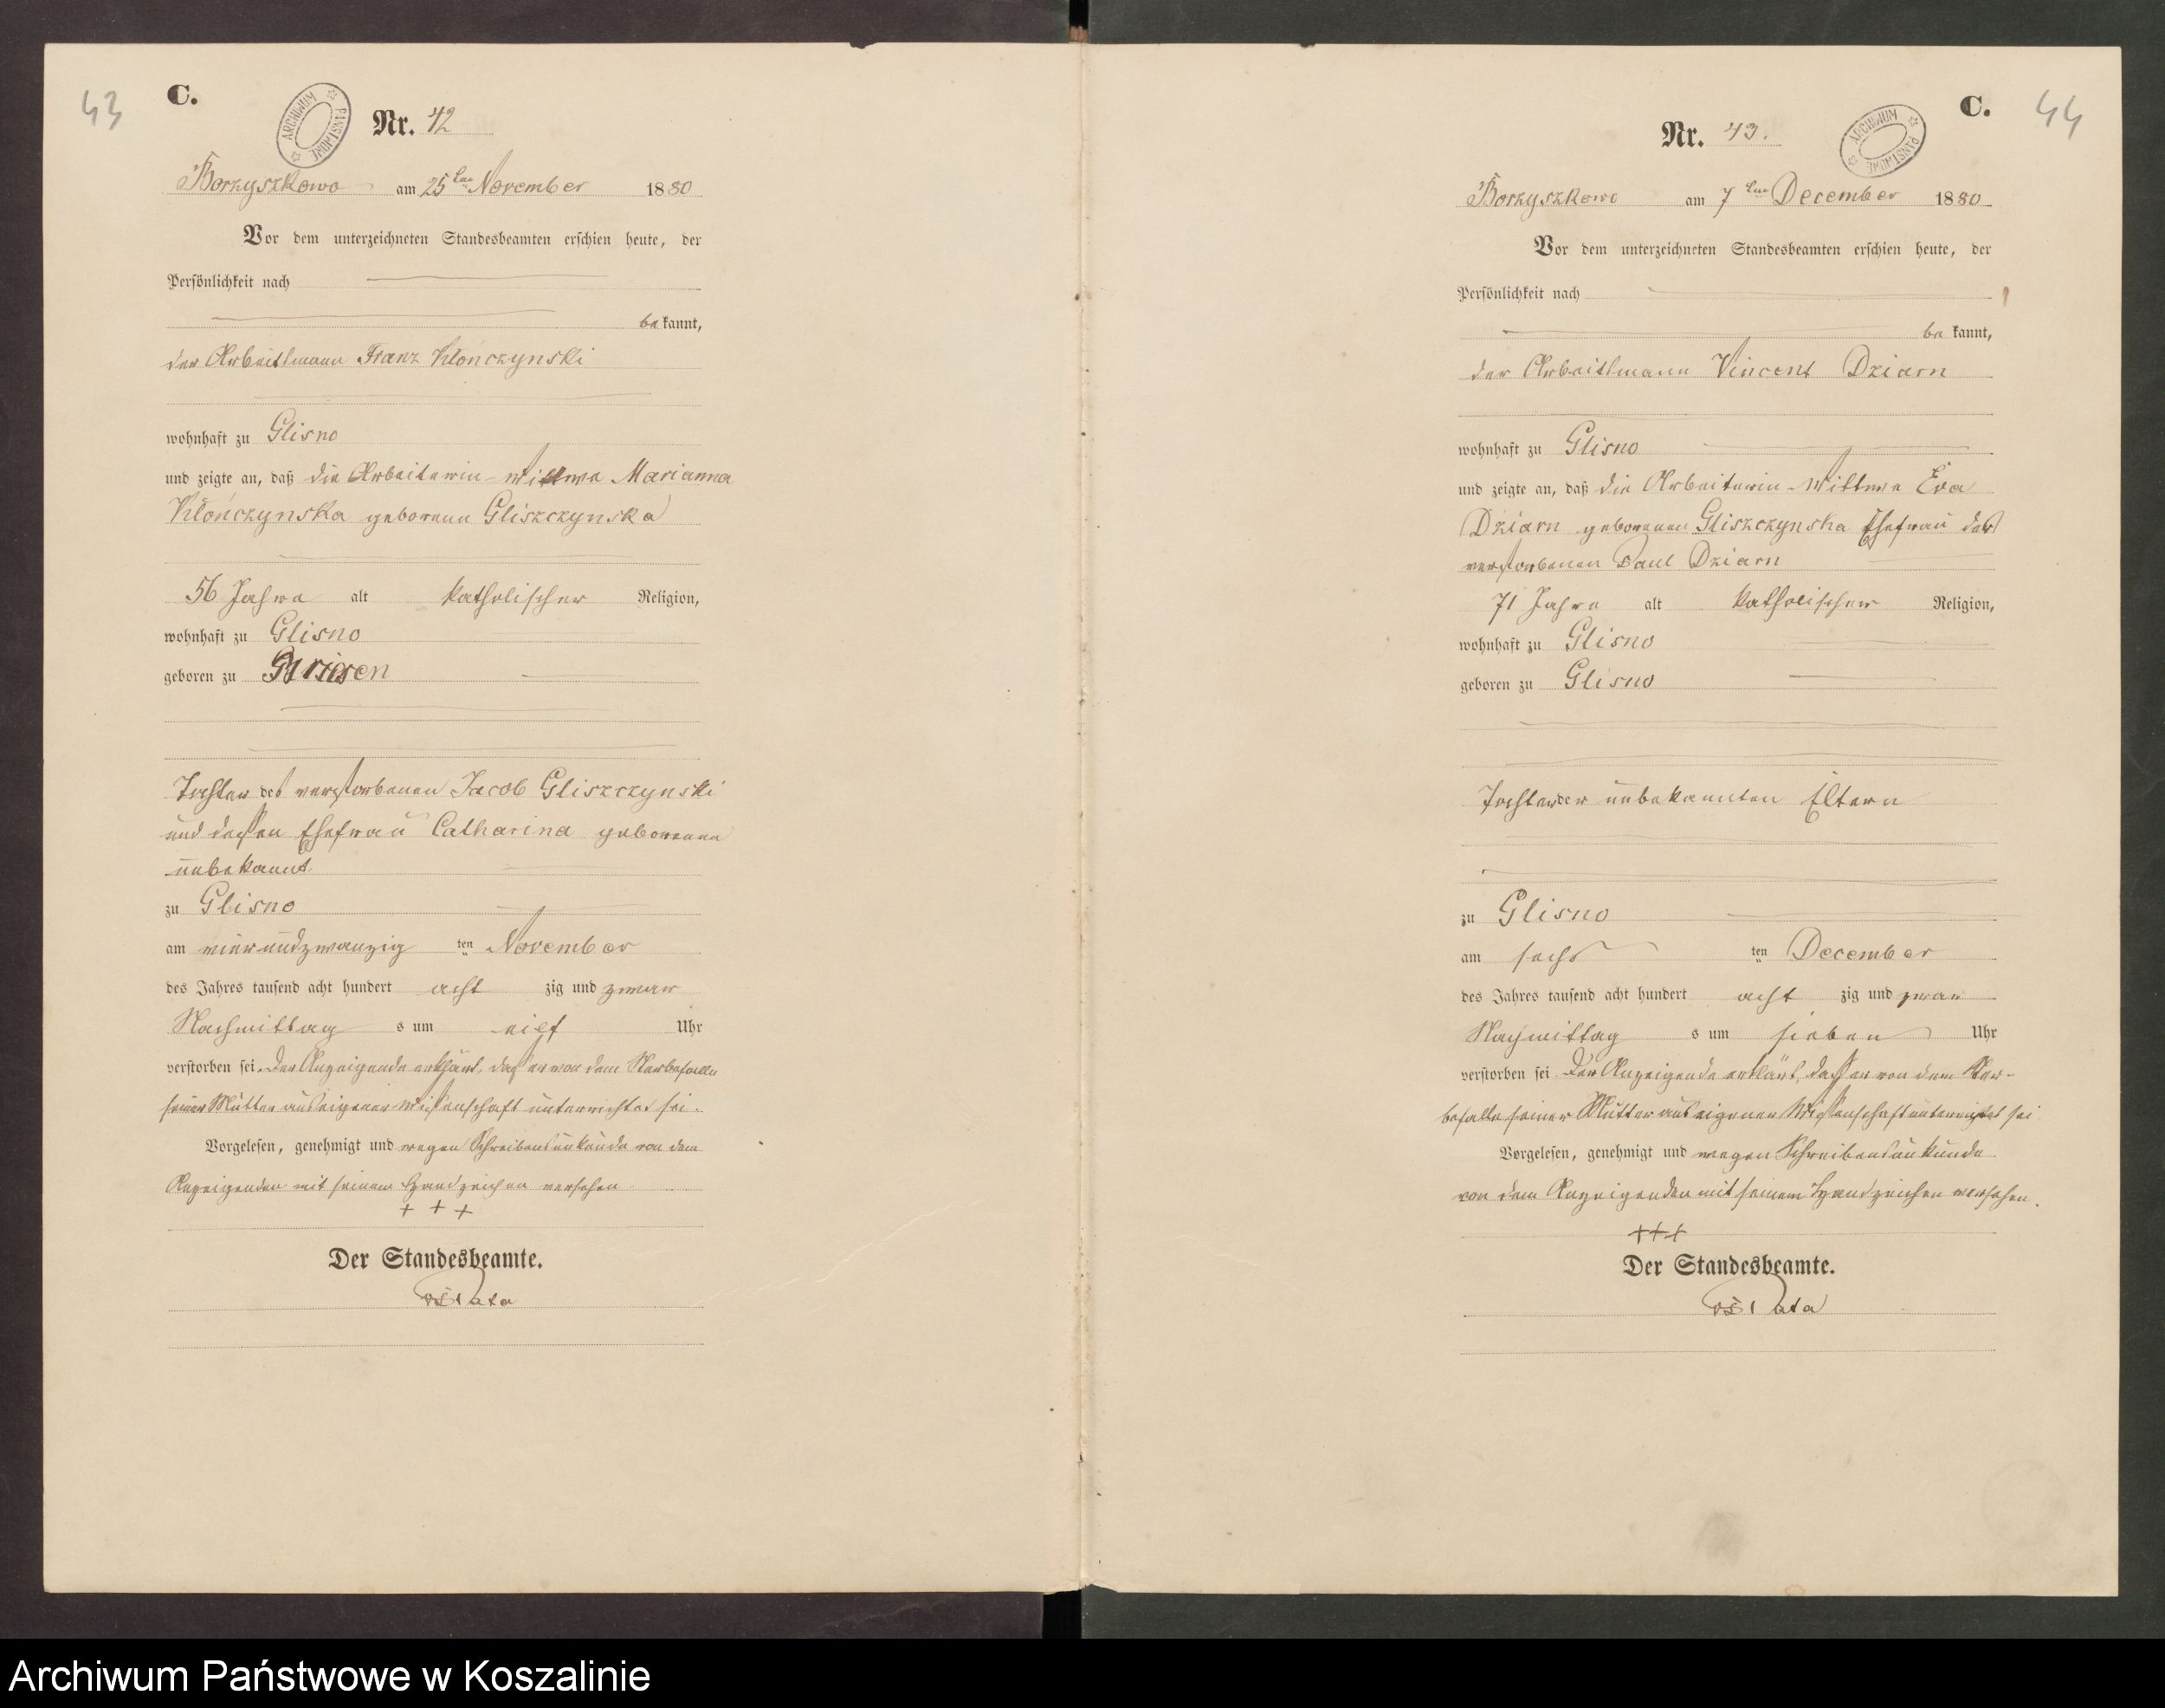 43
C.
ARCHIWUM PAŃSTWOWE
Nr. 42
Borzyszkowo am 25ten November 1880
Vor dem unterzeichneten Standesbeamten erschien heute, der
Persönlichkeit nach
bekannt,
der Arbeitsmann Franz Kłonczynski
wohnhaft zu Glisno
und zeigte an, daß die Arbeiterin-Wittwe Marianna
Kłończynska geborene Gliszczynska
56 Jahre alt katholischer Religion,
wohnhaft zu Glisno
geboren zu
Tochter des verstorbenen Jacob Gliszczynski
und dessen Ehefrau Catharina geborene
unbekannt.
zu Glisno
am vierundzwanzig ten November
des Jahres tausend acht hundert acht zig und zwar
Nachmittag s um eilf Uhr
verstorben sei. Der Anzeigende erklärt, daß er von dem Sterbefalle
seiner Mutter aus eigener Wissenschaft unterrichtet sei.
Vorgelesen, genehmigt und wegen Schreibensunkunde von dem
Anzeigenden mit seinem Handzeichen versehen
+ + +
Der Standesbeamte.
44
C.
ARCHIWUM PAŃSTWOWE
Nr. 43.
Borzyszkowo am 7ten December 1880
Vor dem unterzeichneten Standesbeamten erschien heute, der
Persönlichkeit nach
bekannt,
der Arbeitsmann Vincent Dziarn
wohnhaft zu Glisno
und zeigte an, daß die Arbeiterin-Wittwe Eva
Dziarn geborenen Gliszczynska Ehefrau des
verstorbenen Paul Dziarn
71 Jahre alt katholischer Religion,
wohnhaft zu Glisno
geboren zu Glisno
Tochter der unbekannten Eltern
zu Glisno
am sechs ten December
des Jahres tausend acht hundert acht zig und zwar
Nachmittag s um sieben Uhr
verstorben sei. Der Anzeigende erklärt, daß er von dem Ster-
befalle seiner Mutter aus eigener Wissenschaft unterrichtet sei
Vorgelesen, genehmigt und wegen Schreibensunkunde
von dem Anzeigenden mit seinem Handzeichen versehen.
+++
Der Standesbeamte.
Archiwum Państwowe w Koszalinie